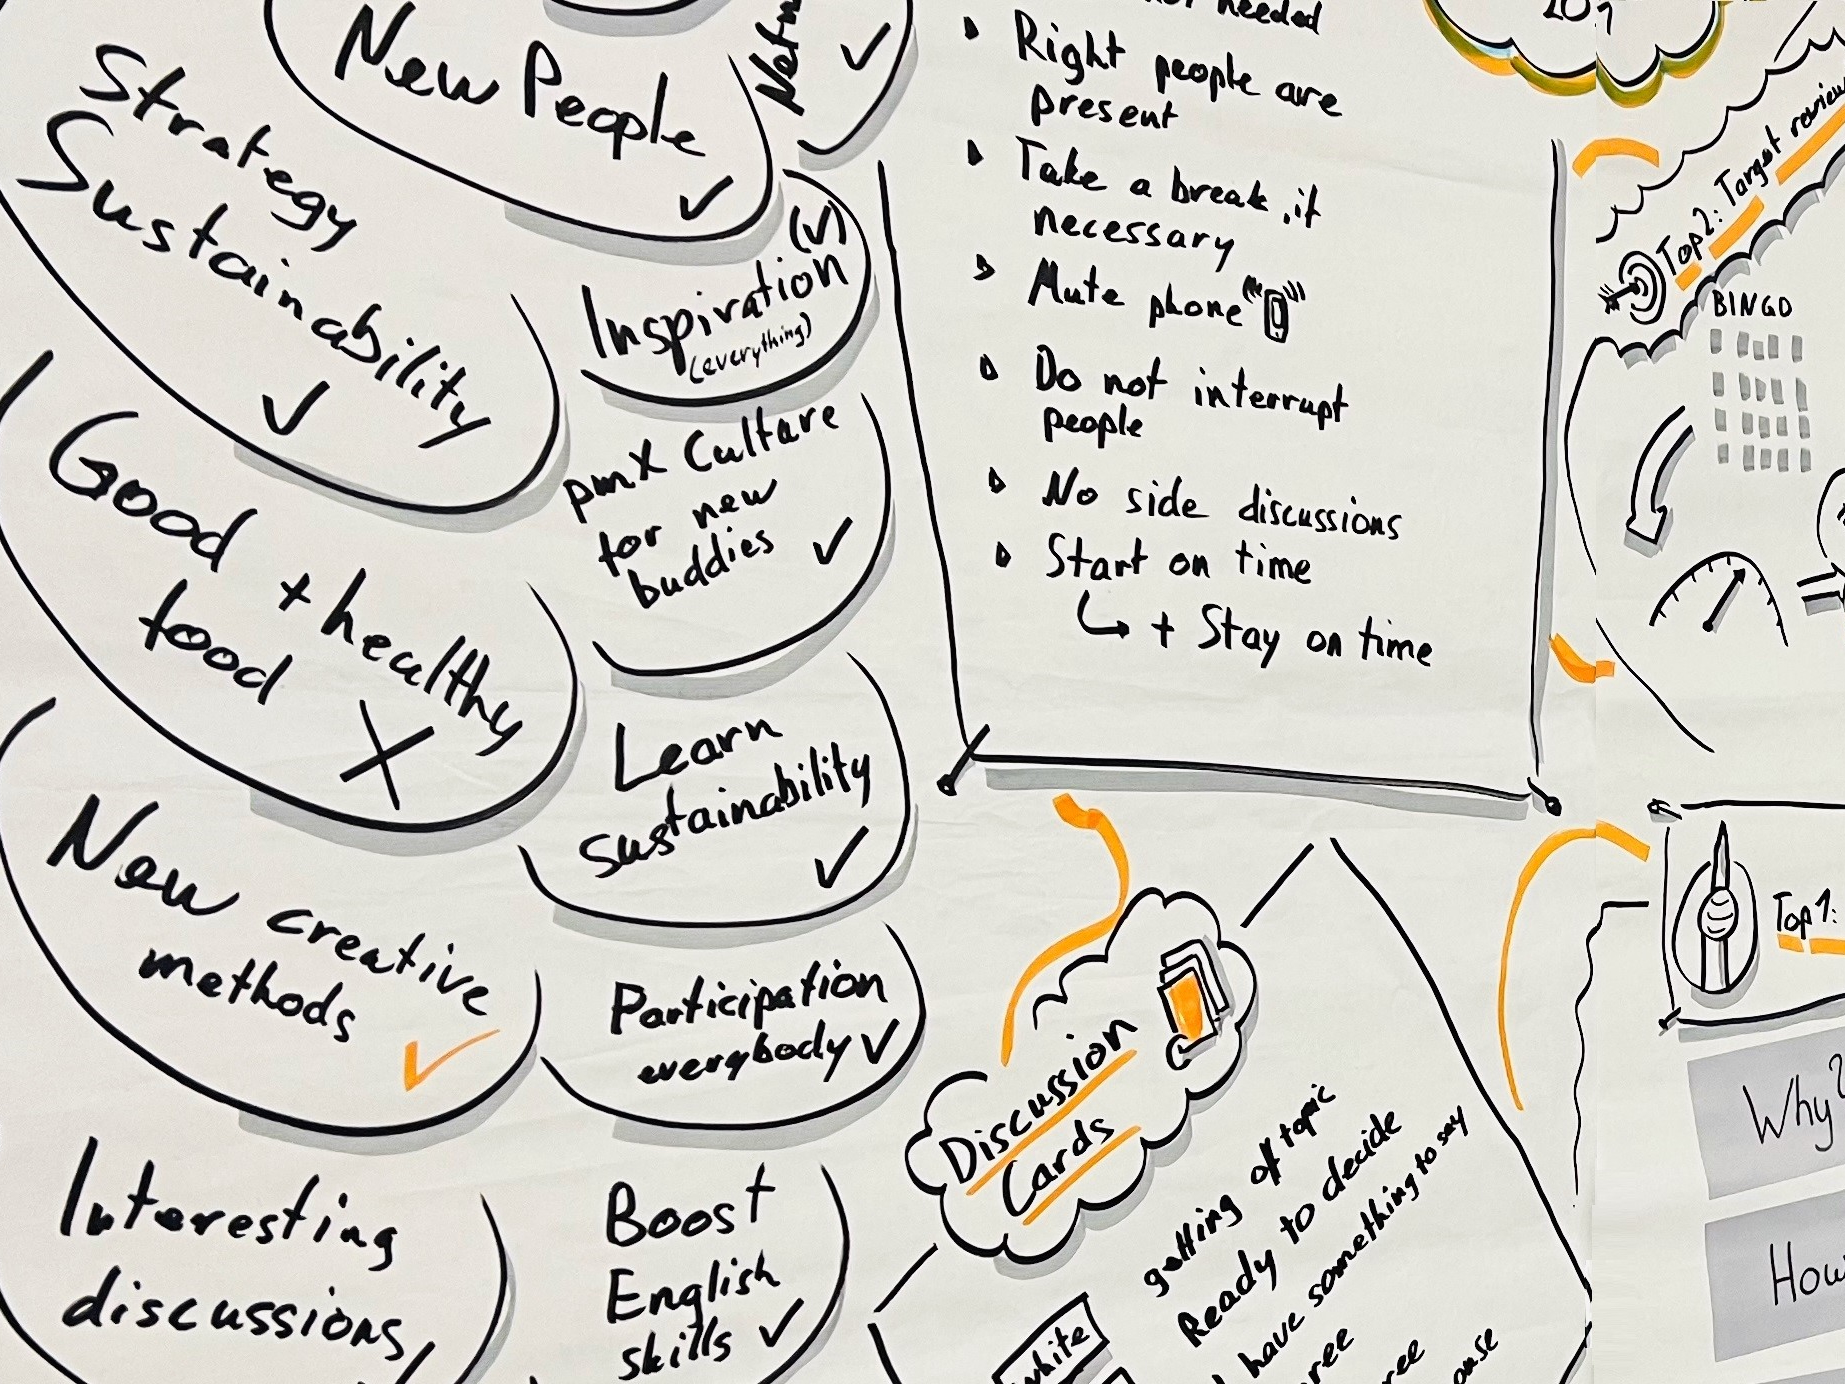 New People
✓
✓
Strategy
Sustainability
✓
(✓)
Inspiration
(everything)
Good + healthy
food
X
pmX Culture
for new
buddies ✓
Learn
sustainability
✓
New creative
methods
✓
Participation
everybody ✓
Interesting
discussions
Boost
English
skills ✓
needed
Right people are
present
Take a break, if
necessary
Mute phone
Do not interrupt
people
No side discussions
Start on time
+ Stay on time
Discussion
Cards
getting of topic
Ready to decide
have something to say
white
Top2: Target review
BINGO
Top1:
Why?
How